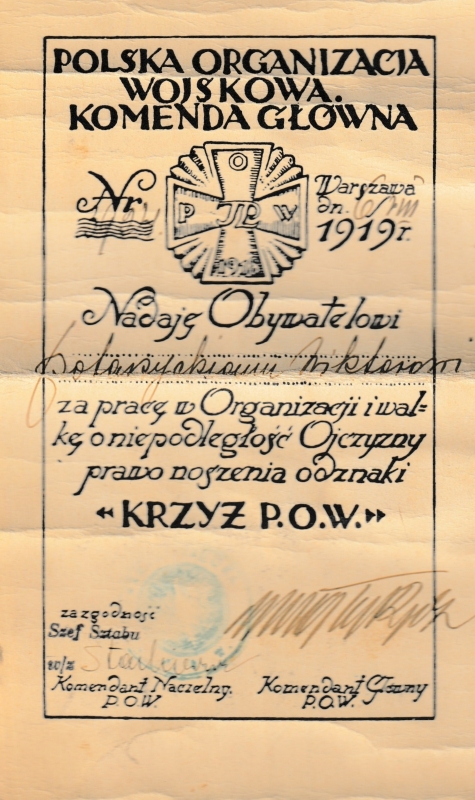 POLSKA ORGANIZACJA
WOJSKOWA.
KOMENDA GŁÓWNA
Nr
O
P JP W
Warszawa
dn.
1919 r.
Nadaję Obywatelowi
Wiktorowi
za pracę w Organizacji i wal-
kę o niepodległość Ojczyzny
prawo noszenia odznaki
"KRZYŻ P.O.W."
za zgodność
Szef Sztabu
Komendant Naczelny.
P.O.W.
Komendant Główny
P.O.W.